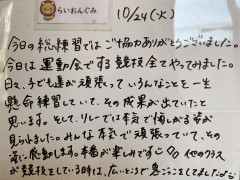 らいおんぐみ
10/24(火)
今日の総練習ではご協力ありがとうございました。
今日は運動会でする競技全てやってみました。
日々、子ども達が頑張っていろんなことを一生
懸命練習していて、その成果が出ていたと
思います。そして、リレーでは本気で悔しがる姿が
見られました。みんな本気で頑張っていて、その
姿に感動します。本番が楽しみです 他のクラス
が競技をしている時は、広いところで過ごしてましたが